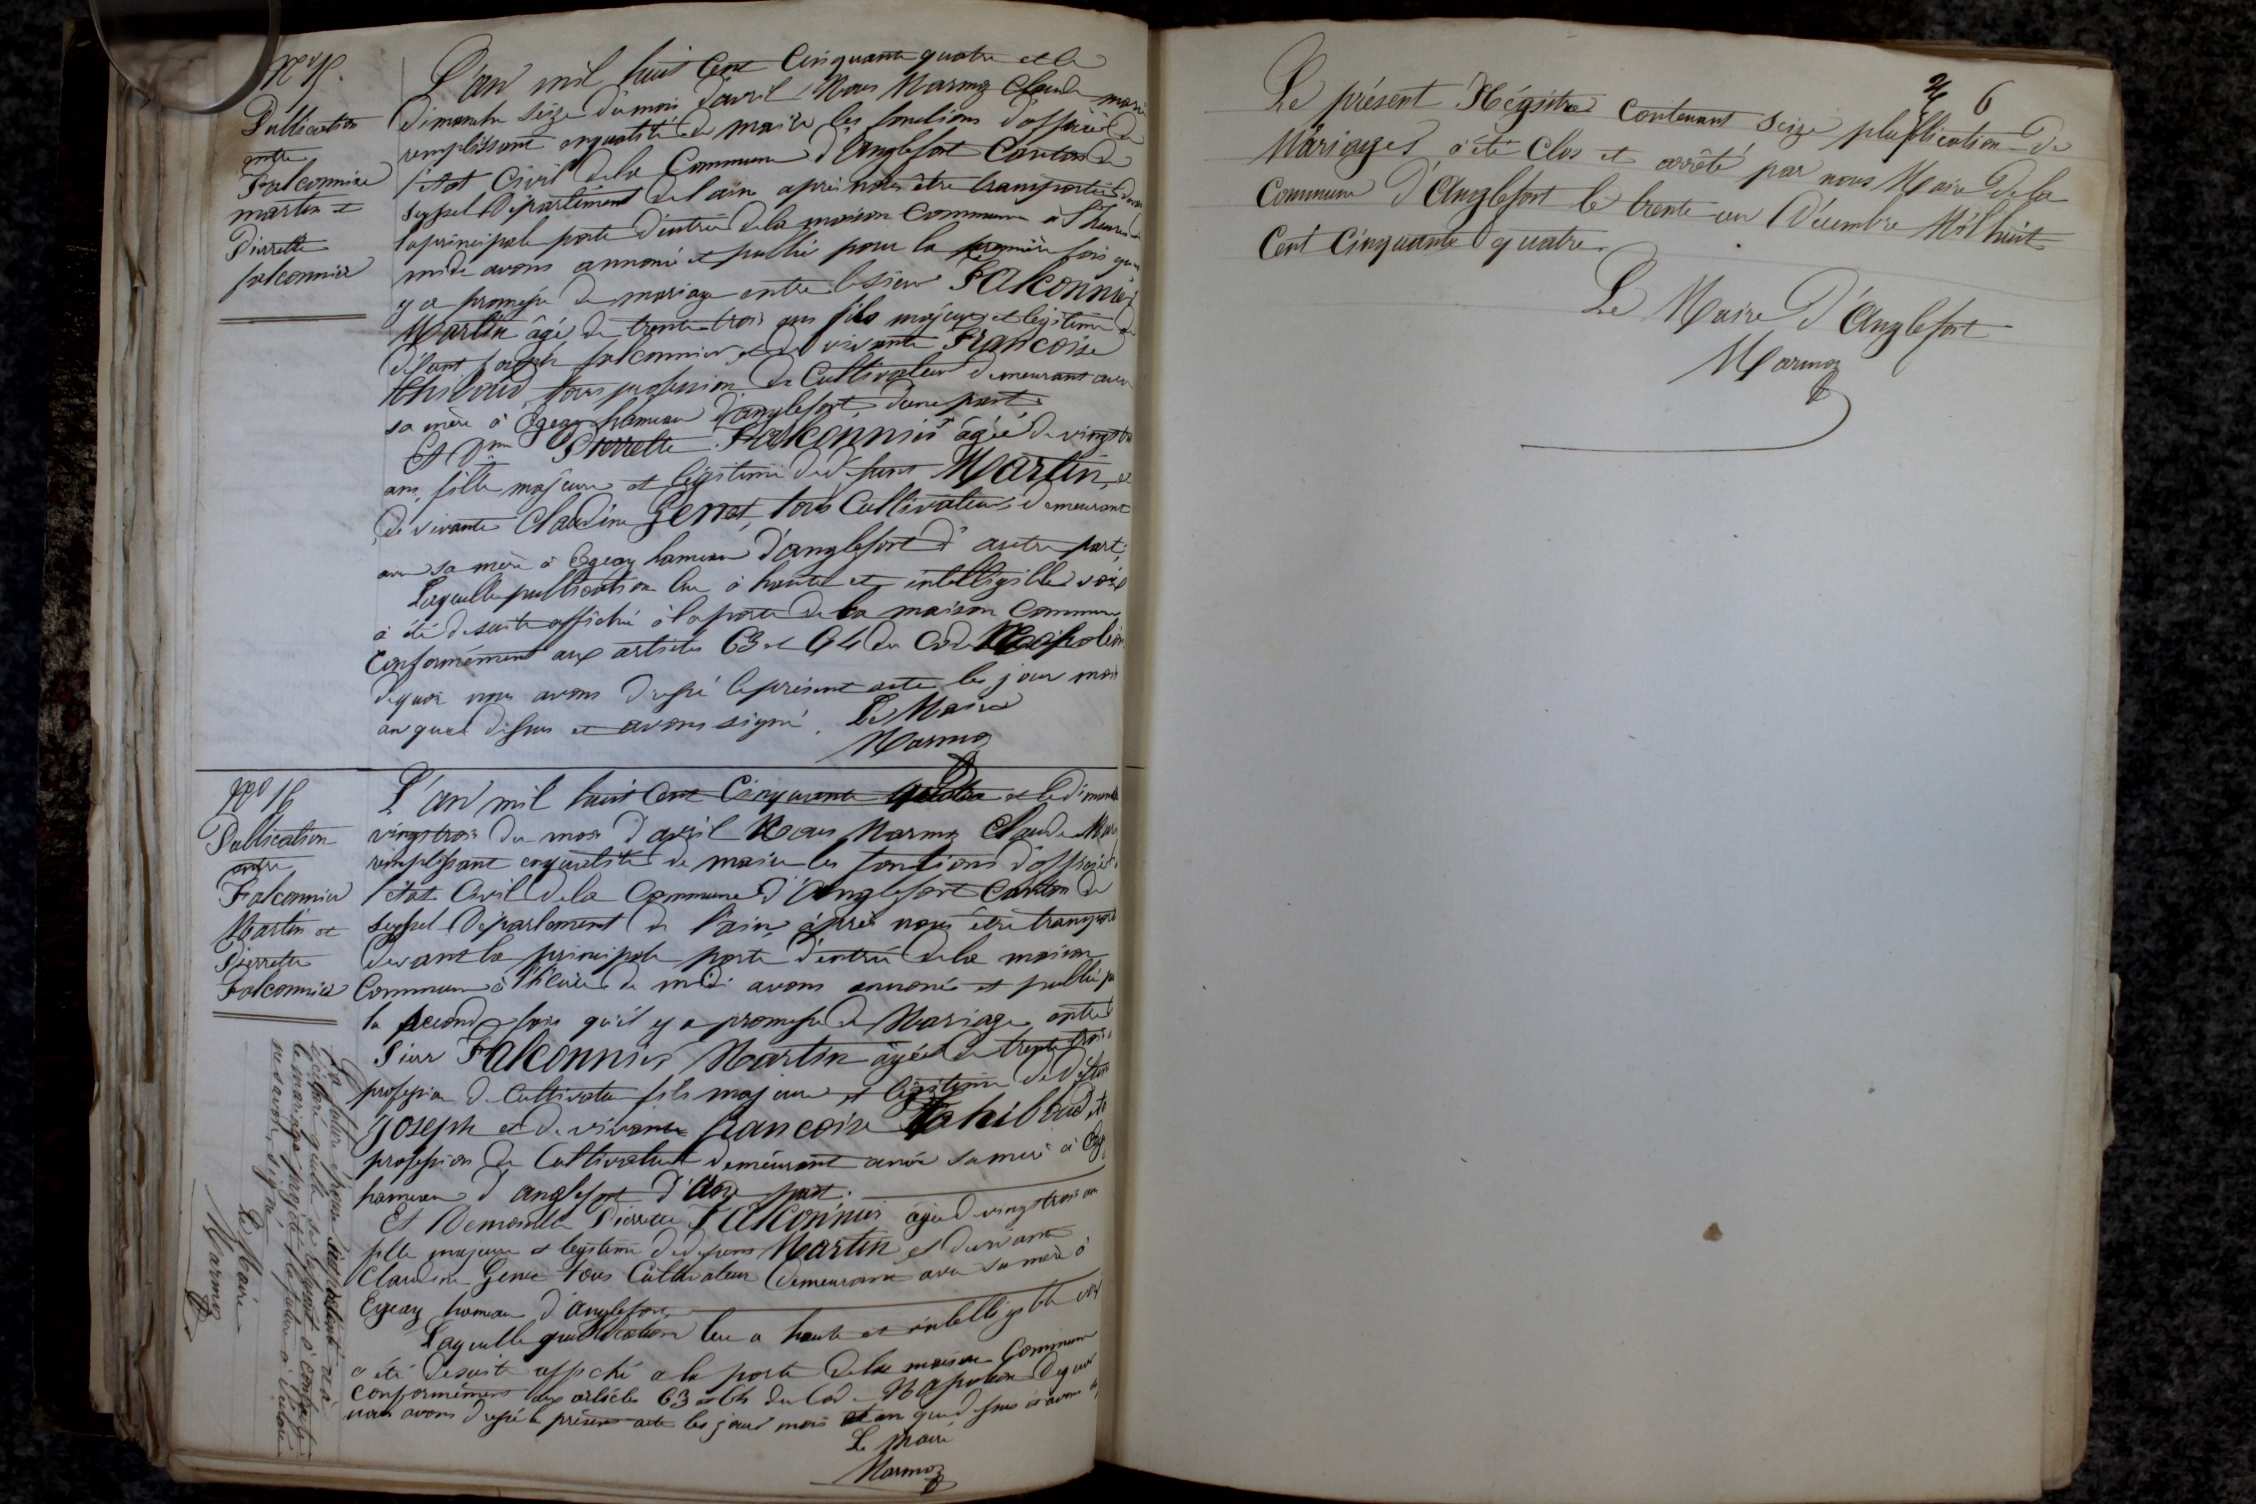 No 15.
Publication
entre
Falconnier
martin et
Pierrette
falconnier
L'an mil huit Cent Cinquante quatre et le
dimanche seize du mois d'avril Nous Marmoz Claude marie
remplissant enqualité de maire les fonctions d'officier de
l'état Civil dela Commune d'anglefort Canton de
seyssel Département de l'ain après nous être transporté devant
laprincipale porte d'entrée dela maison Commune à l'heure de
midi avons annoncé et publié pour la première fois qu'il
y a promesse de mariage entre lesieur Falconnier
Martin âgé de trente trois ans fils majeur et légitime de
défunt joseph falconnier et de vivante Françoise
thiboud tous profession de Cultivateur demeurant avec
sa mère à Egeay hameau d'anglefort, d'une part.
Et Dme Pierrette Falconnier âgée de vingt trois
ans, fille majeure et légitime de défunt Martin, et
de vivante Claudine Genet, tous Cultivateurs demeurant
avec sa mère à Egeay hameau d'anglefort d'autre part;
Laquelle publication lue à haute et intelligible voix
à été desuite affichée à la porte de la maison Commune
Conformément aux articles 63 et 64 du Code Napoléon
dequoi nous avons dressé leprésent acte les jour mois
an que dessus et avons signé. Le Maire
Marmoz
No 16
Publication
entre
Falconnier
Martin et
Pierrette
Falconnier
L'an mil huit Cent Cinquante quatre et le dimanche
vingt trois du mois d'avril Nous Marmoz Claude Marie
remplissant enqualité de maire les fonctions d'officier de
l'état Civil dela Commune d'Anglefort Canton de
seyssel Département de l'ain, après nous être transporté
devant la principale porte d'entrée dela maison
Commune à l'heure de midi avons annoncé et publié pour
la seconde fois qu'il y a promesse de Mariage entre le
sieur Falconnier Martin âgé de trente trois
profession de Cultivateur fils majeur et légitime de défunt
Joseph et de vivante françoise Thiboud,
profession de Cultivateur demeurant avec sa mère à Egeay
hameau d'anglefort d'une part.
Et Demoiselle Pierrette Falconnier âgée de vingt trois ans
fille majeure et légitime de défunt Martin et de vivante
Claudine Genet tous Cultivateur demeurant avec sa mère à
Egeay hameau d'anglefort
Laquelle publication lue a haute et intelligible voix
a été desuite affiché a la porte dela maison Commune
Conformément aux articles 63 et 64 du Code Napoléon dequoi
nous avons dressé le présent acte les jour mois et an que dessus et avons
Le Maire
Marmoz
La future épouse
déclaré qu'elle se refusait à contracter
le mariage projeté la future a déclaré
ne savoir signer,
Le Maire
Marmoz
6
Le présent Régistre Contenant seize plublication De
Mariages a été Clos et arrêté par nous Maire Dela
Commune d'Anglefort le trente un Décembre Mil huit
Cent Cinquante quatre.
Le Maire d'Anglefort
Marmoz